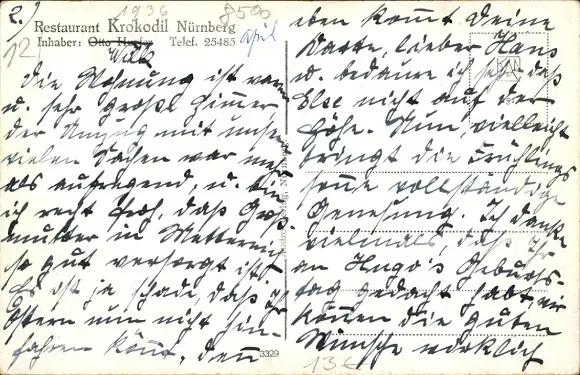 2.)
1936
8500
April
Restaurant Krokodil Nürnberg
Inhaber: Otto Telef. 25485
12
die Wohnung ist
u. sehr große Zimmer,
der Umzug mit unseren
vielen Sachen war mehr
als aufregend, u. bin
ich recht froh, daß Groß-
mutter in Metternich
so gut versorgt ist.
Es ist ja schade, daß Ihr
Ostern nun nicht hin-
fahren könnt, denn
eben kommt Deine
Karte, lieber Hans
u. bedaure ich sehr, daß
Else nicht auf der
Höhe. Nun, vielleicht
bringt die Frühlings
sonne vollständige
Genesung. Ich danke
vielmals, daß Ihr
an Hugo's Geburts-
tag gedacht habt, wir
können die guten
Wünsche wirklich
3329
13€